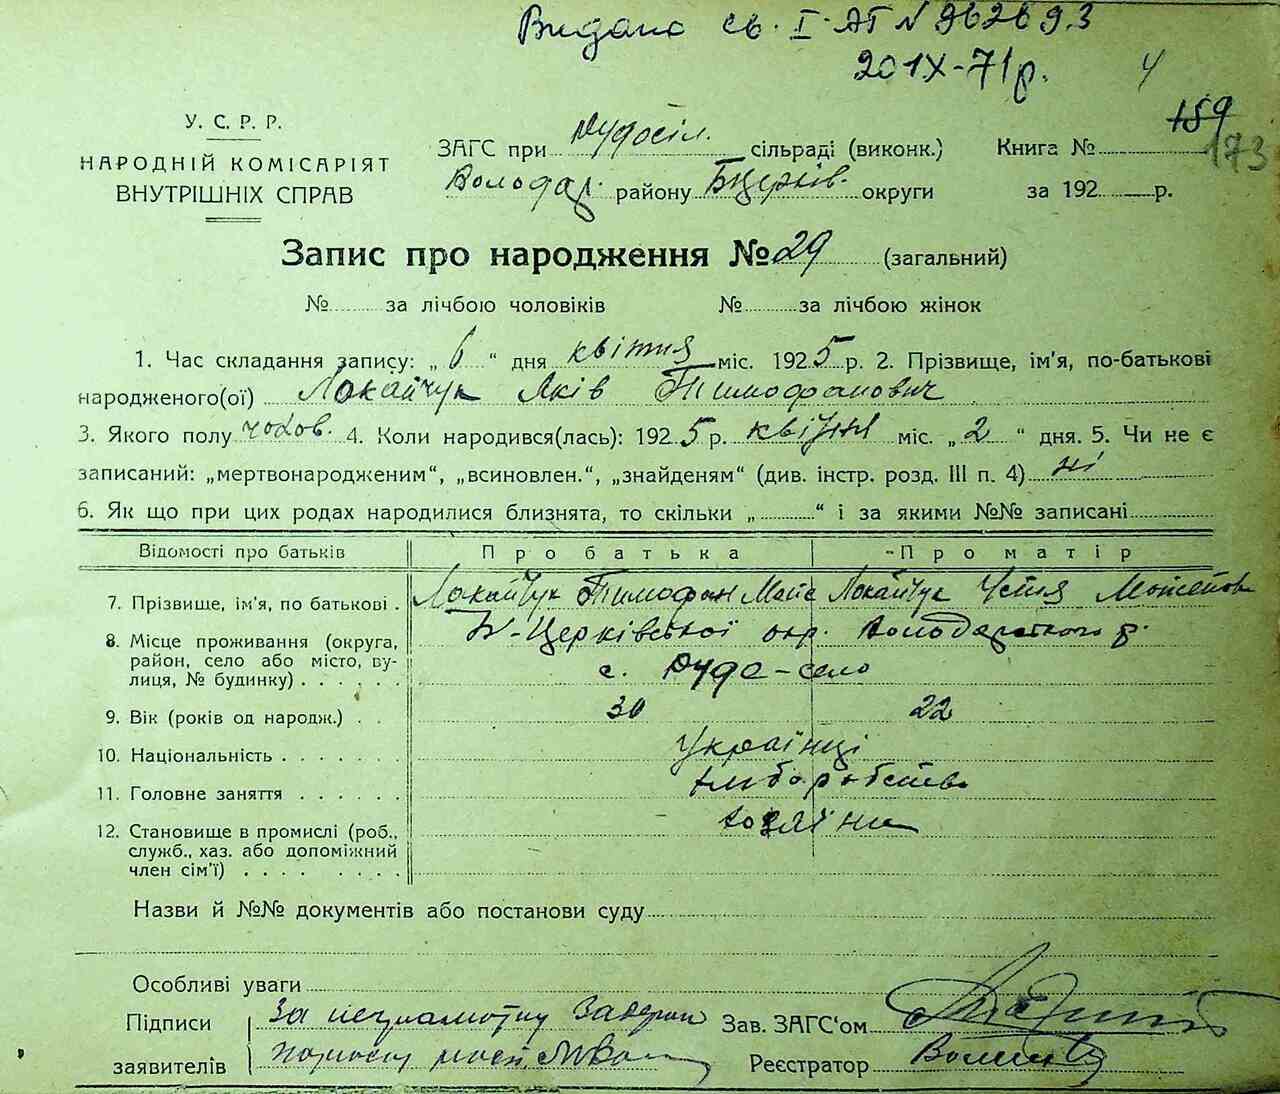 Видано св. I-АГ № 962693
20 IX-71 р. 4
159
173
У. С. Р. Р.
НАРОДНІЙ КОМІСАРІЯТ
ВНУТРІШНІХ СПРАВ
ЗАГС при Рудосіл. сільраді (виконк.) Книга №
Володар. району Бцерків. округи за 192 р.
Запис про народження № 29 (загальний)
№ за лічбою чоловіків № за лічбою жінок
1. Час складання запису: „ 6 “ дня квітня міс. 1925 р. 2. Прізвище, ім'я, по-батькові
народженого(ої) Локайчук Яків Тимофанович
3. Якого полу чолов. 4. Коли народився(лась): 1925 р. квітня міс. „ 2 “ дня. 5. Чи не є
записаний: „мертвонародженим“, „всиновлен.“, „знайденям“ (див. інстр. розд. III п. 4) ні
6. Як що при цих родах народилися близнята, то скільки „ “ і за якими №№ записані
Відомості про батьків Про батька Про матір
7. Прізвище, ім'я, по батькові . Локайчук Тимофан Локайчук Устя
8. Місце проживання (округа, Б-Церківської окр. Володарського р.
район, село або місто, ву-
лиця, № будинку) . . . . . . с. Руде-село
9. Вік (років од народж.) . . 30 22
10. Національність . . . . . . . Українці
11. Головне заняття . . . . . . хліборобство
12. Становище в промислі (роб., хозяїни
служб., хаз. або допоміжний
член сім'ї) . . . . . . . .
Назви й №№ документів або постанови суду
Особливі уваги
Підписи За неграмотну Зав. ЗАГС'ом
заявителів Реєстратор